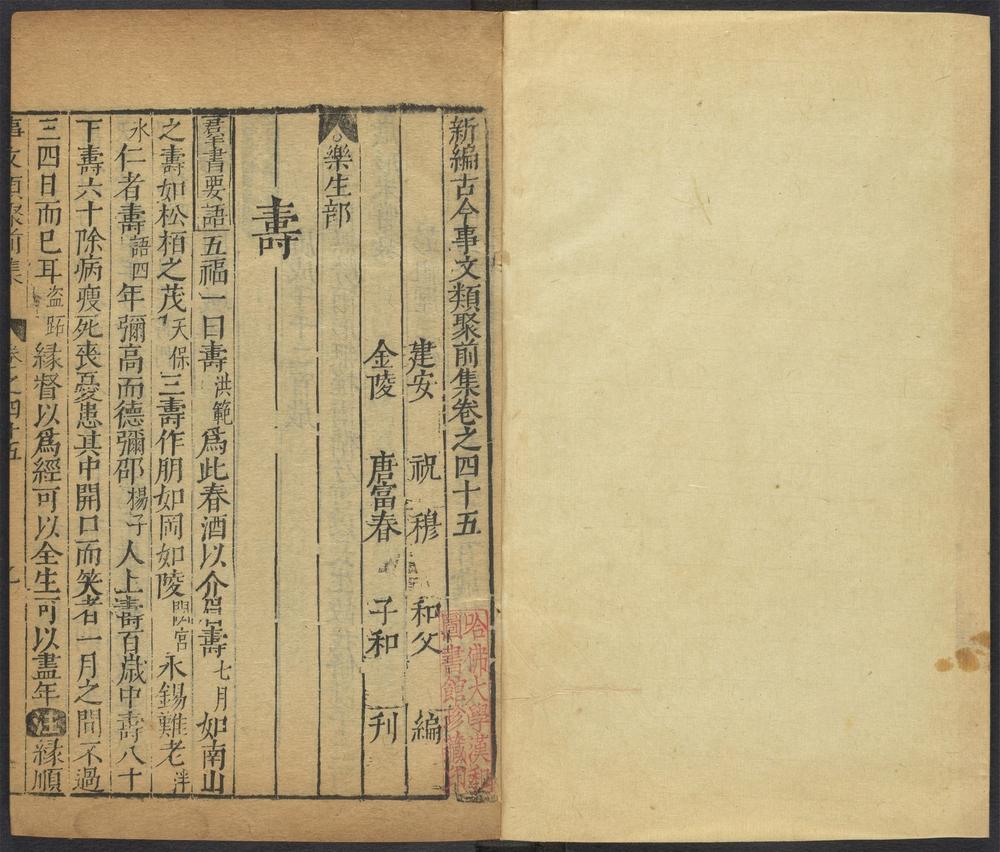 新編古今事文類聚前集卷之四十五
建安　祝　穆　和父　編
金陵　唐富春　子和　刊
樂生部
壽
羣書要語五福一曰壽洪範爲此春酒以介眉壽七月如南山
之壽如松栢之茂天保三壽作朋如岡如陵閟宮永錫難老泮
水仁者壽語四年彌高而德彌邵楊子人上壽百歲中壽八十
下壽六十除病瘦死喪憂患其中開口而笑者一月之間不過
三四日而已耳盜跖緣督以爲經可以全生可以盡年注緣順
事文類聚前集　卷之四十五　一
哈佛大學漢和
圖書館珍藏印